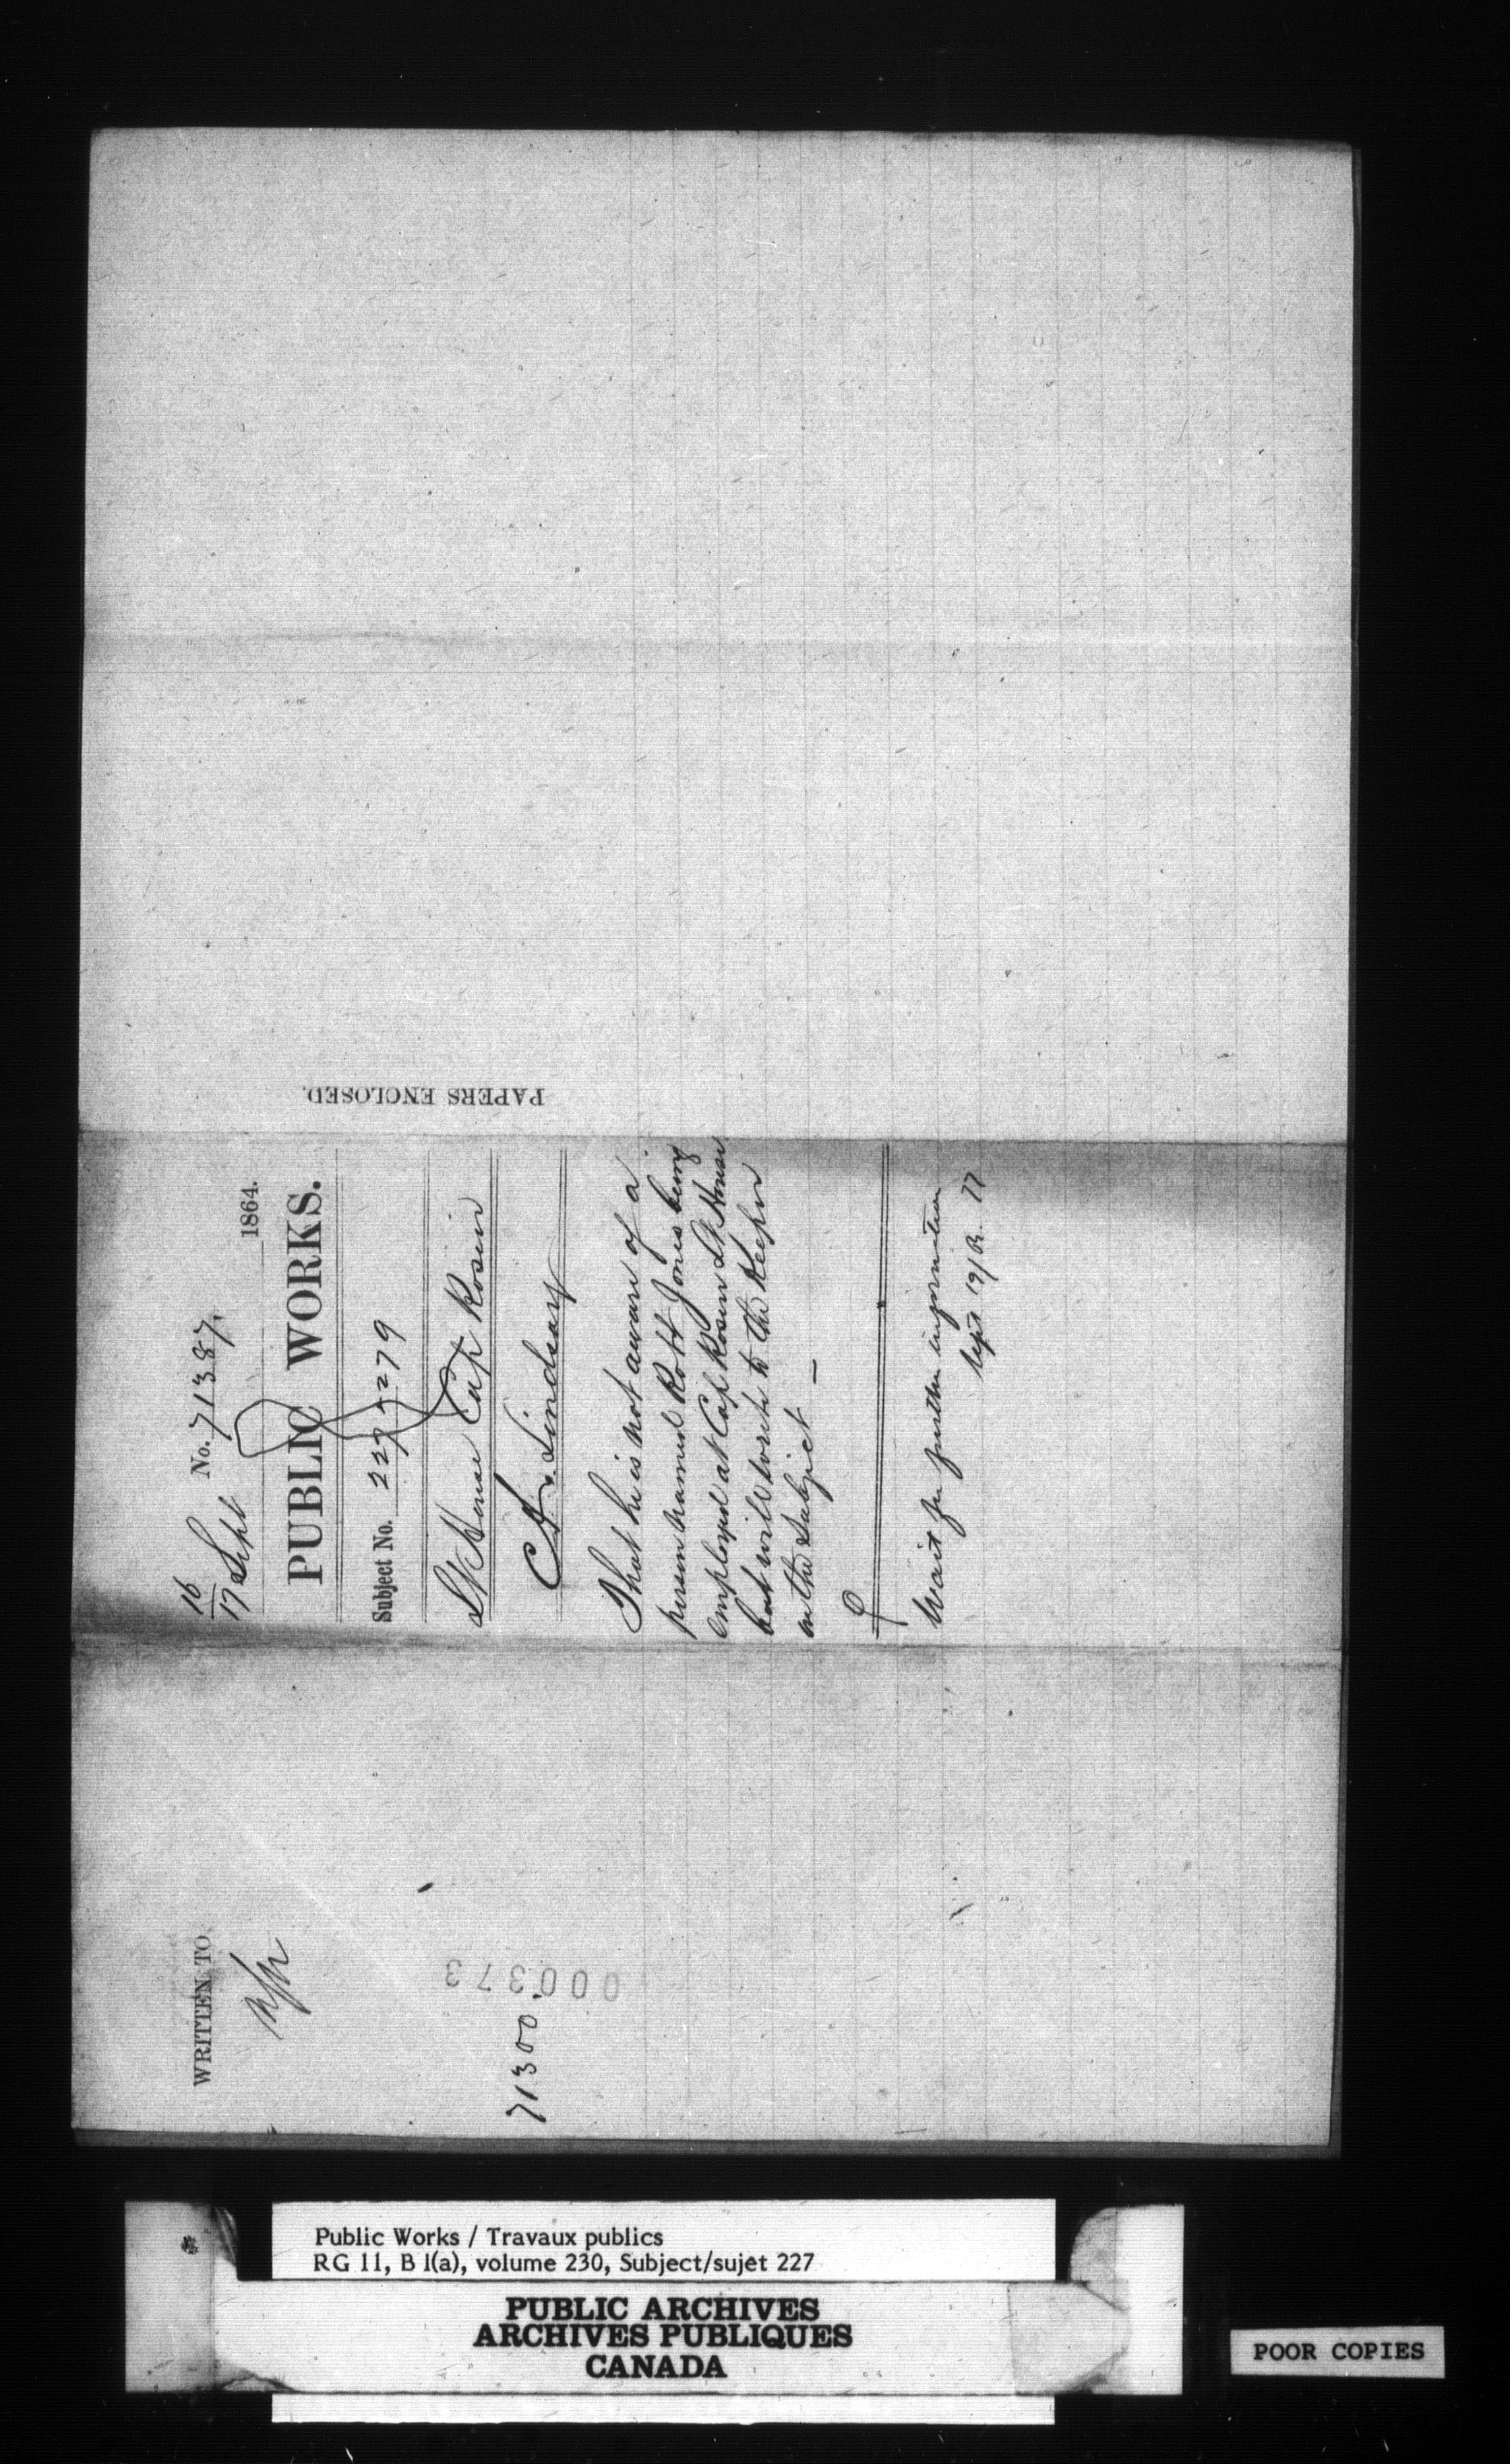 16
17 Sept No. 71387.
1864.
PUBLIC WORKS.
Subject No. 227 + 279
Lt House Cap Rosier
Lindsay
That he is not aware of a
person named Robt Jones being
employed at Cap Rosier Lt House
but will write to the Keeper
on the subject –
Wait for further information
Sept 19/
PAPERS ENCLOSED.
WRITTEN TO
71300.
000373
Public Works / Travaux publics
RG 11, B 1(a), volume 230, Subject/sujet 227
PUBLIC ARCHIVES
ARCHIVES PUBLIQUES
CANADA
POOR COPIES